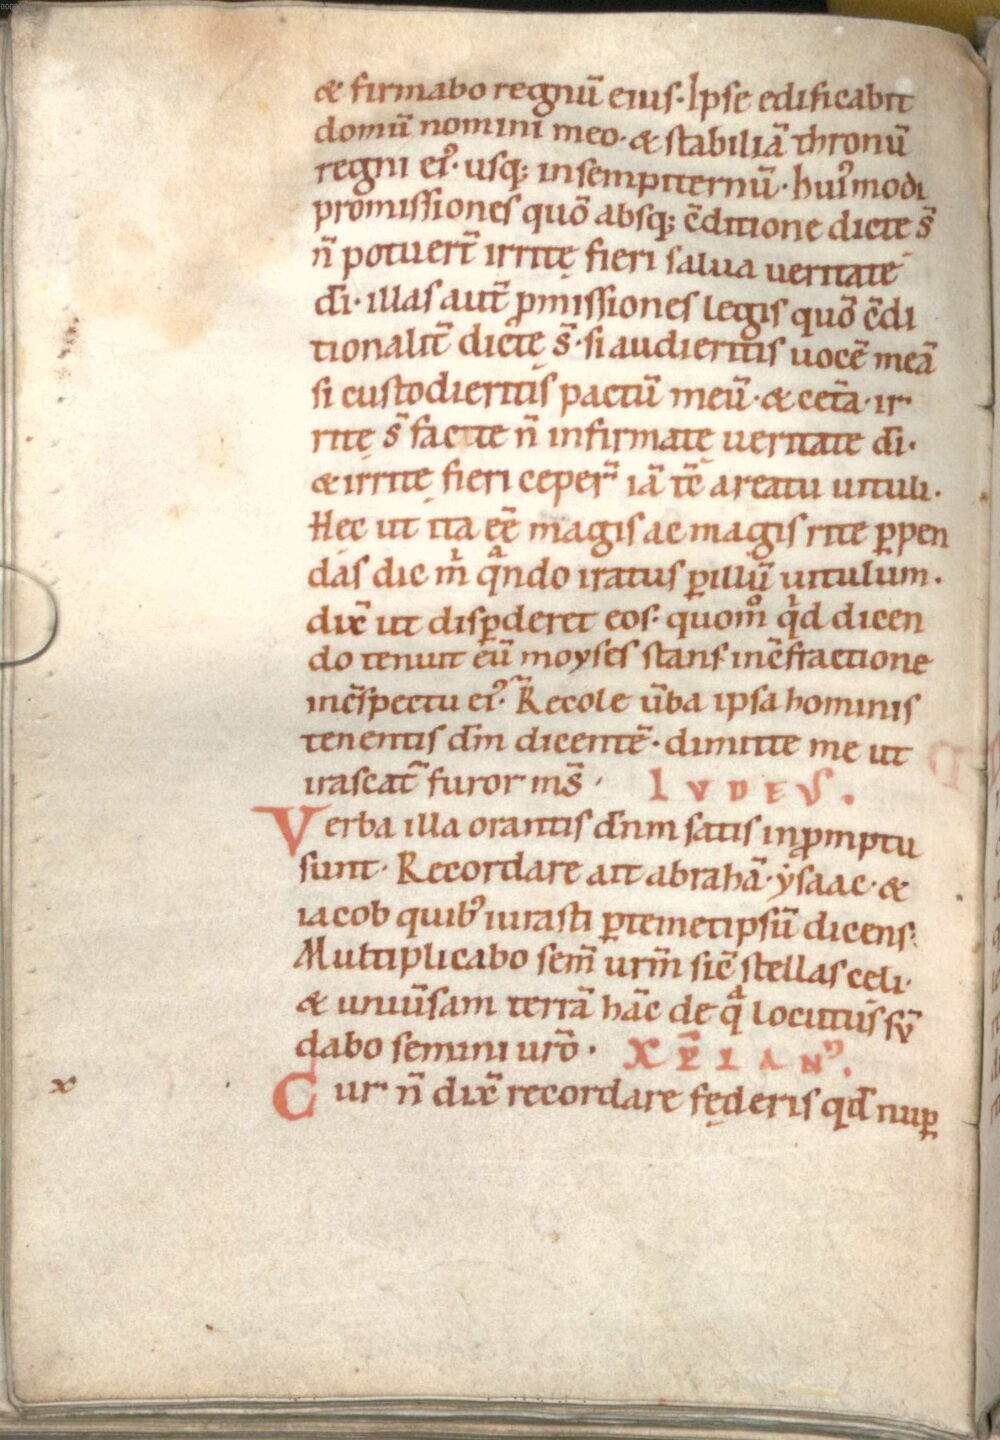 & firmabo regnū eius. Ipse edificabit
domū nomini meo. & stabiliā thronū
regni ei᾽. usq; in sempiternū. hui᾽modi
promissiones quō absq; c̄ditione dicte s̄
n̄ potuer̄t irritę fieri salua ueritate
dī. illas aut̄ ꝓmissiones legis quō c̄di
tionalit̄ dictę s̄. si audieritis uocē meā
si custodieritis pactū meū. & ceta̅. ir
ritę s̄ factae n̄ infirmatę ueritate dī.
& irritę fieri ceper̄ iā tc̄ a reatu uituli.
Hec ut ita eē magis ac magis rite ꝑpen
das dic m̄ qᵃndo iratus ꝑ illū uitulum.
dix̄ ut disꝑderet eos. quom̊ qⁱd dicen
do tenuit eū moyses stans in c̄fractione
in c̄spectu ei᾽. Recole ūba ipsa hominis
tenentis dm̄ dicentē. dimitte me ut
irascat̄ furor ms̄. IVDEVS.
Verba illa orantis dn̄m satis in ꝓmptu
sunt. Recordare ait abrahā. ẏsaac. &
iacob quib᾽ iurasti ꝑ temetipsū dicens.
Multiplicabo sem̄ urm̄ sic̄ stellas celi.
& uniūsam terrā hāc de qᵃ locutus sū
dabo semini urō. XP̄IAN᾽.
Cur n̄ dix̄ recordare fęderis qd̄ nuꝑ
x